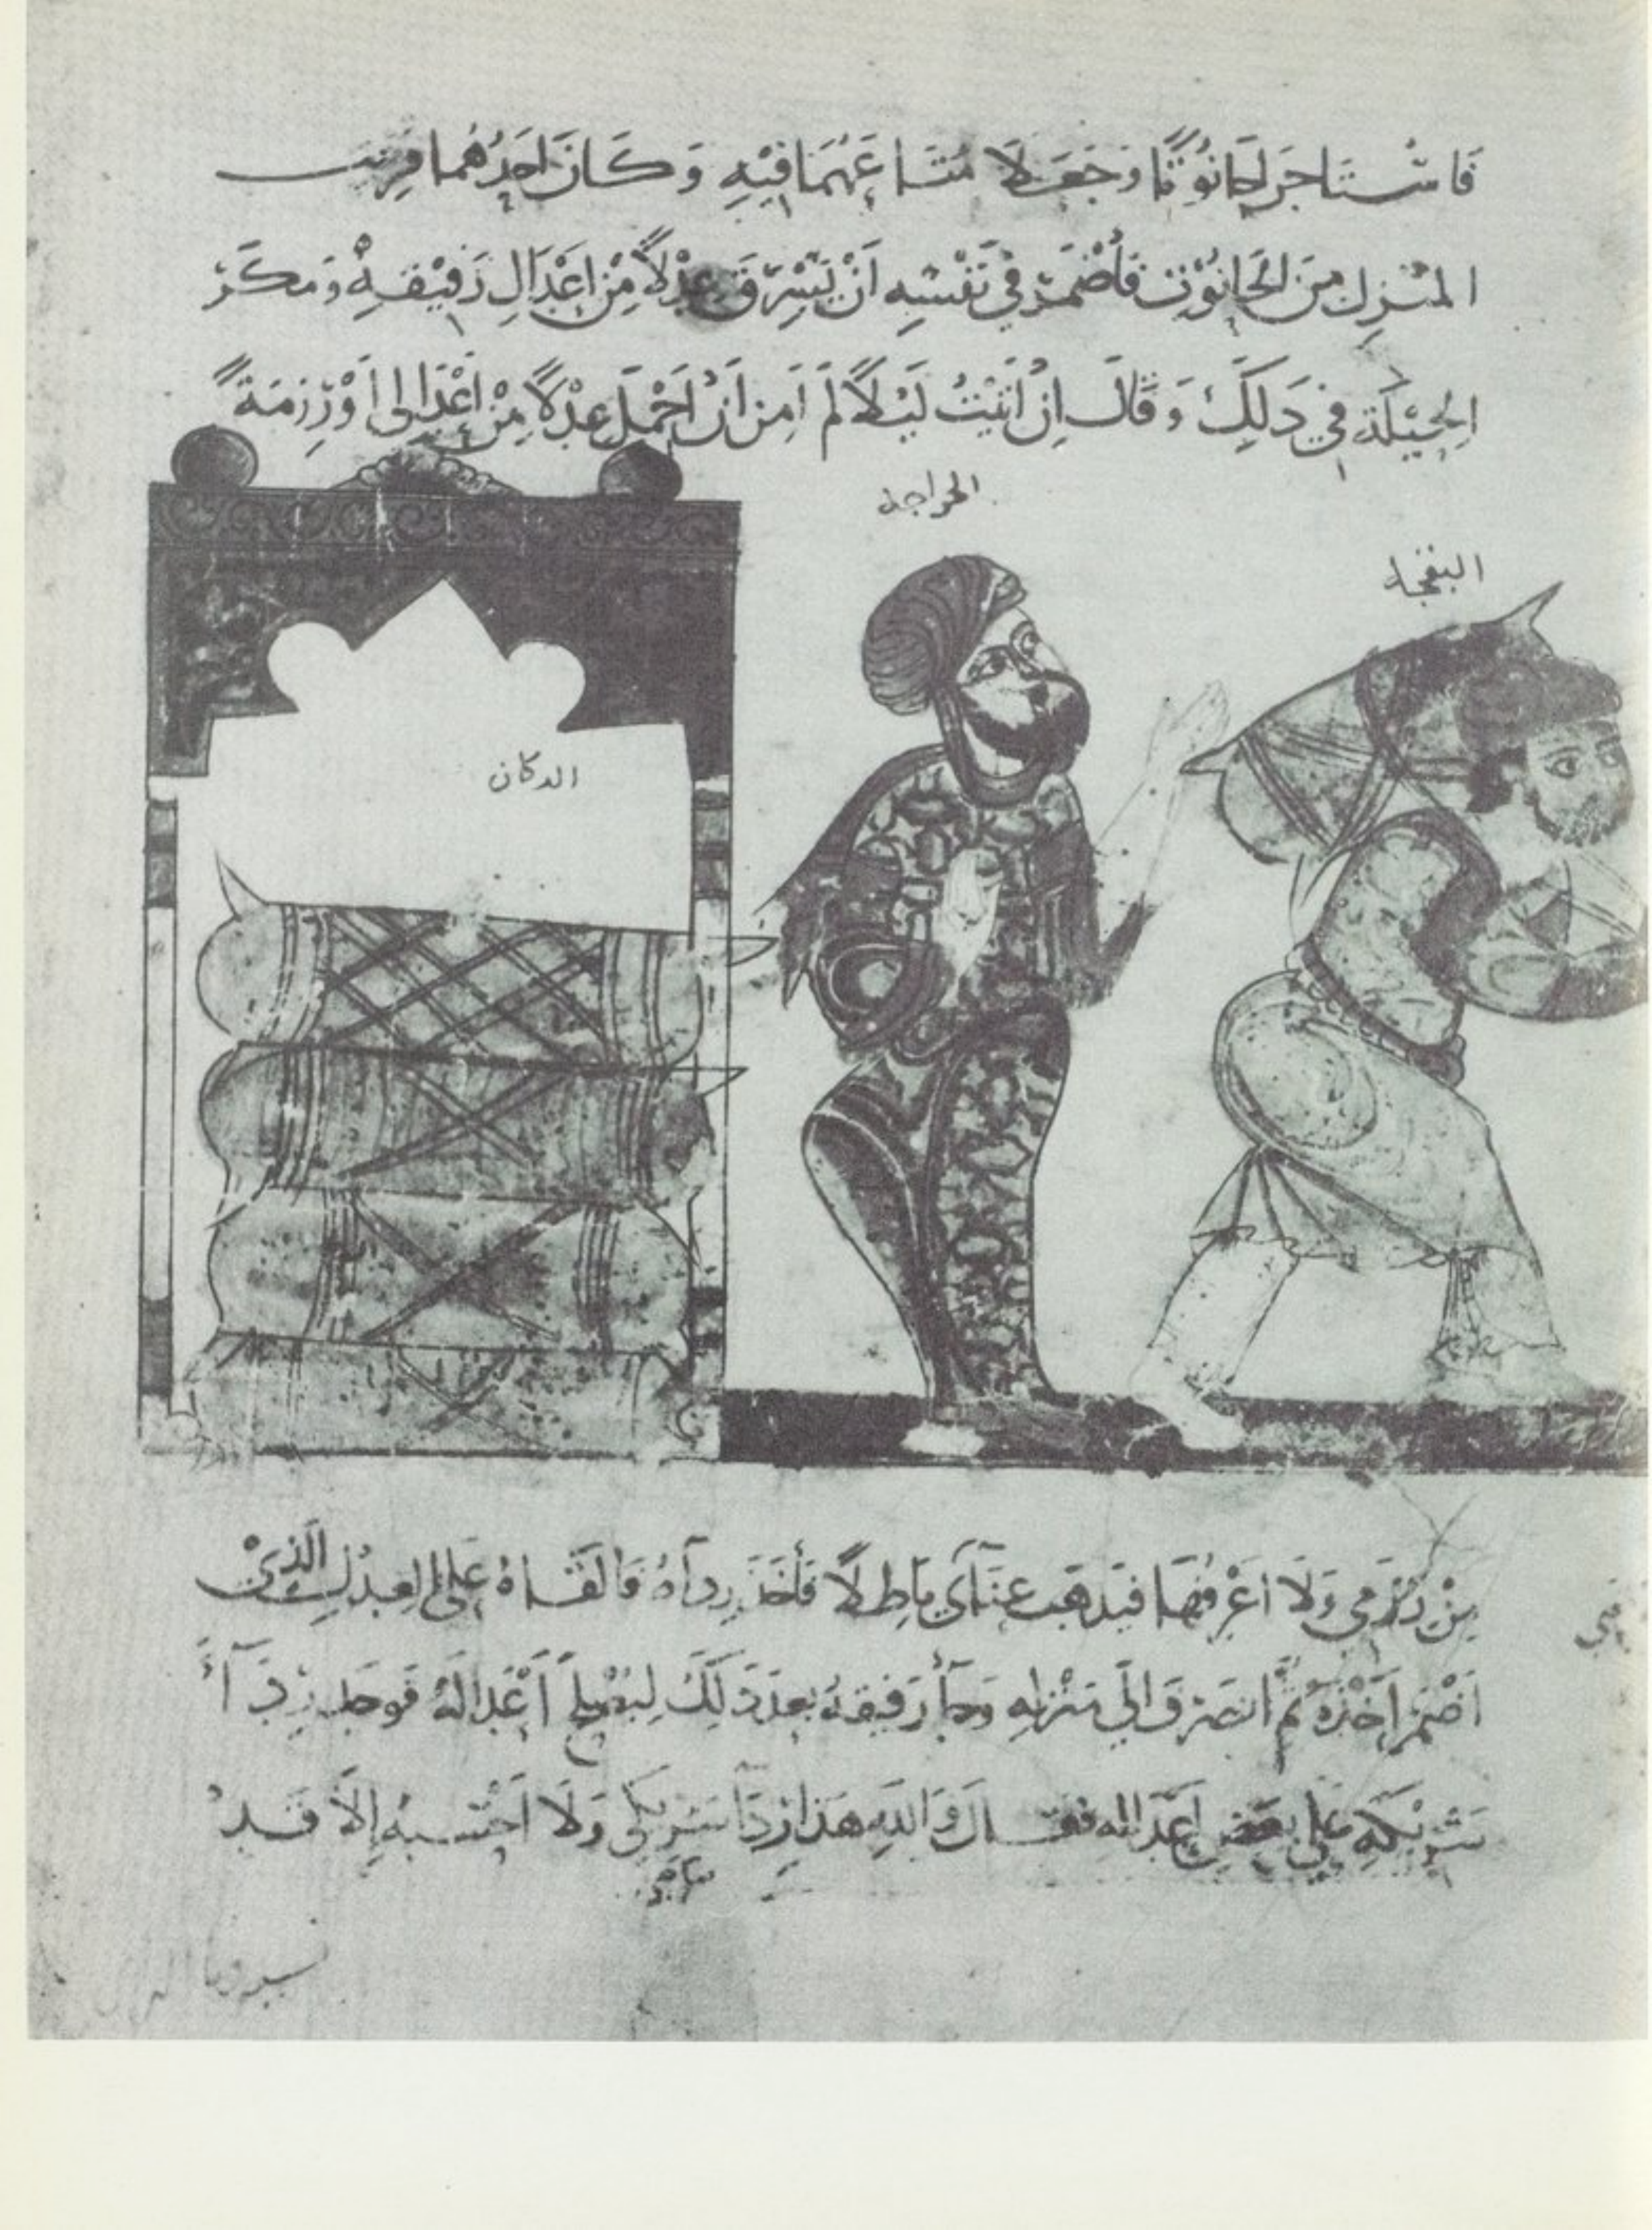 فَاسْتَاجَرَا حَانُوْتًا وَجَعَلَا مَتَاعَهُمَا فِيْهِ وَكَانَ اَحَدُهُمَا قَرِيْب
المنْزِلِ مِنَ الحَانُوْتِ فَأَضْمَرَ فِيْ نَفْسِهِ اَنْ يَسْرِقَ عِدْلًا مِنْ اَعْدَالِ رَفِيْقِهِ وَمَكَرَ
الحِيْلَة فِي ذَلِكَ وَقَالَ اِنْ اَتَيْتُ لَيْلًا لَمْ اَمِن اَنْ اَحْمِلَ عِدْلًا مِنْ اَعْدَالِى اَوْ رِزمَةً
الدكان
مِنْ رُزَمِي وَلَا اَعْرِفُهَا فَيَذْهَب عَنَآءِي بَاطِلًا فَأَخَذَ رِدَآهُ فَالقَاهُ عَلَى العِدْلِ الَّذِيْ
اَضْمَرَ اَخْذهُ ثُمَّ انصَرَفَ اِلَى مَنْزِلِهِ وَجَآ رَفِيقهُ بَعدَ ذَلِكَ لِيُصْلِحَ اَعْدَالَهُ فَوجَدَ رِدَآءَ
شَرِيْكِهِ عَلى بَعضِ اَعْدَالِهِ فَقَالَ وَاللهِ هَذَا رِدَآ شَرِيكِي وَلَا اَحْسبهُ اِلَّا قَد